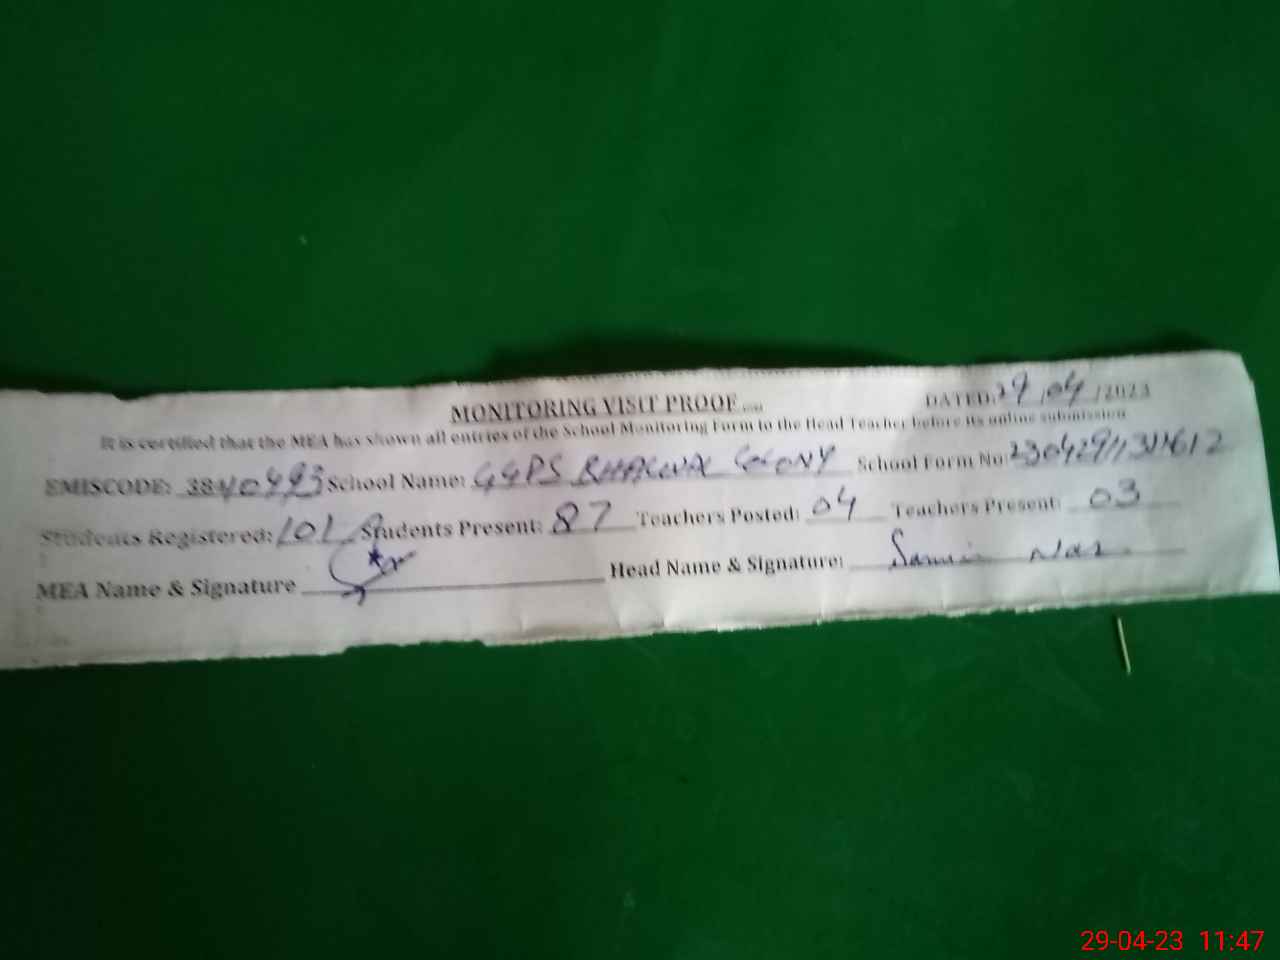 MONITORING VISIT PROOF
DATED: 29/04/2023
It is certified that the MEA has shown all entries of the School Monitoring Form to the Head Teacher before its online submission
EMISCODE: 38440493 School Name: GGPS COLONY School Form No
Students Registered: 101 Students Present: 87 Teachers Posted: 04 Teachers Present: 03
MEA Name & Signature Head Name & Signature:
29-04-23 11:47